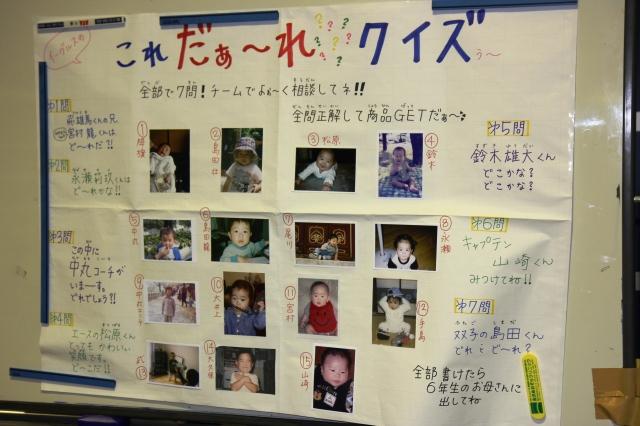 これだぁ〜れ???クイズぅ〜
全部で7問!チームでよぉ〜く相談してネ!!
全問正解して商品GETだぁ〜
第1問
宮村 龍くんは
ど〜れだ?!
①
②島田
③松原
④鈴木
第5問
鈴木雄大くん
どこかな?
どこかな?
第2問
永瀬莉玖くんは
ど〜れかな!!
⑤中丸
⑥島田龍
⑦尾川
⑧永瀬
第6問
キャプテン
山崎くん
みつけてね!!
第3問
この中に
中丸コーチが
いま〜す。
どれでしょう?!
⑨
⑩大井上
⑪宮村
⑫手島
第7問
双子の島田くん
どれとど〜れ?
第4問
エースの松原くん
とってもかわいい
笑顔です。
ど〜こだ!!
⑬武
⑭大久保
⑮山崎
全部書けたら
6年生のお母さんに
出してね